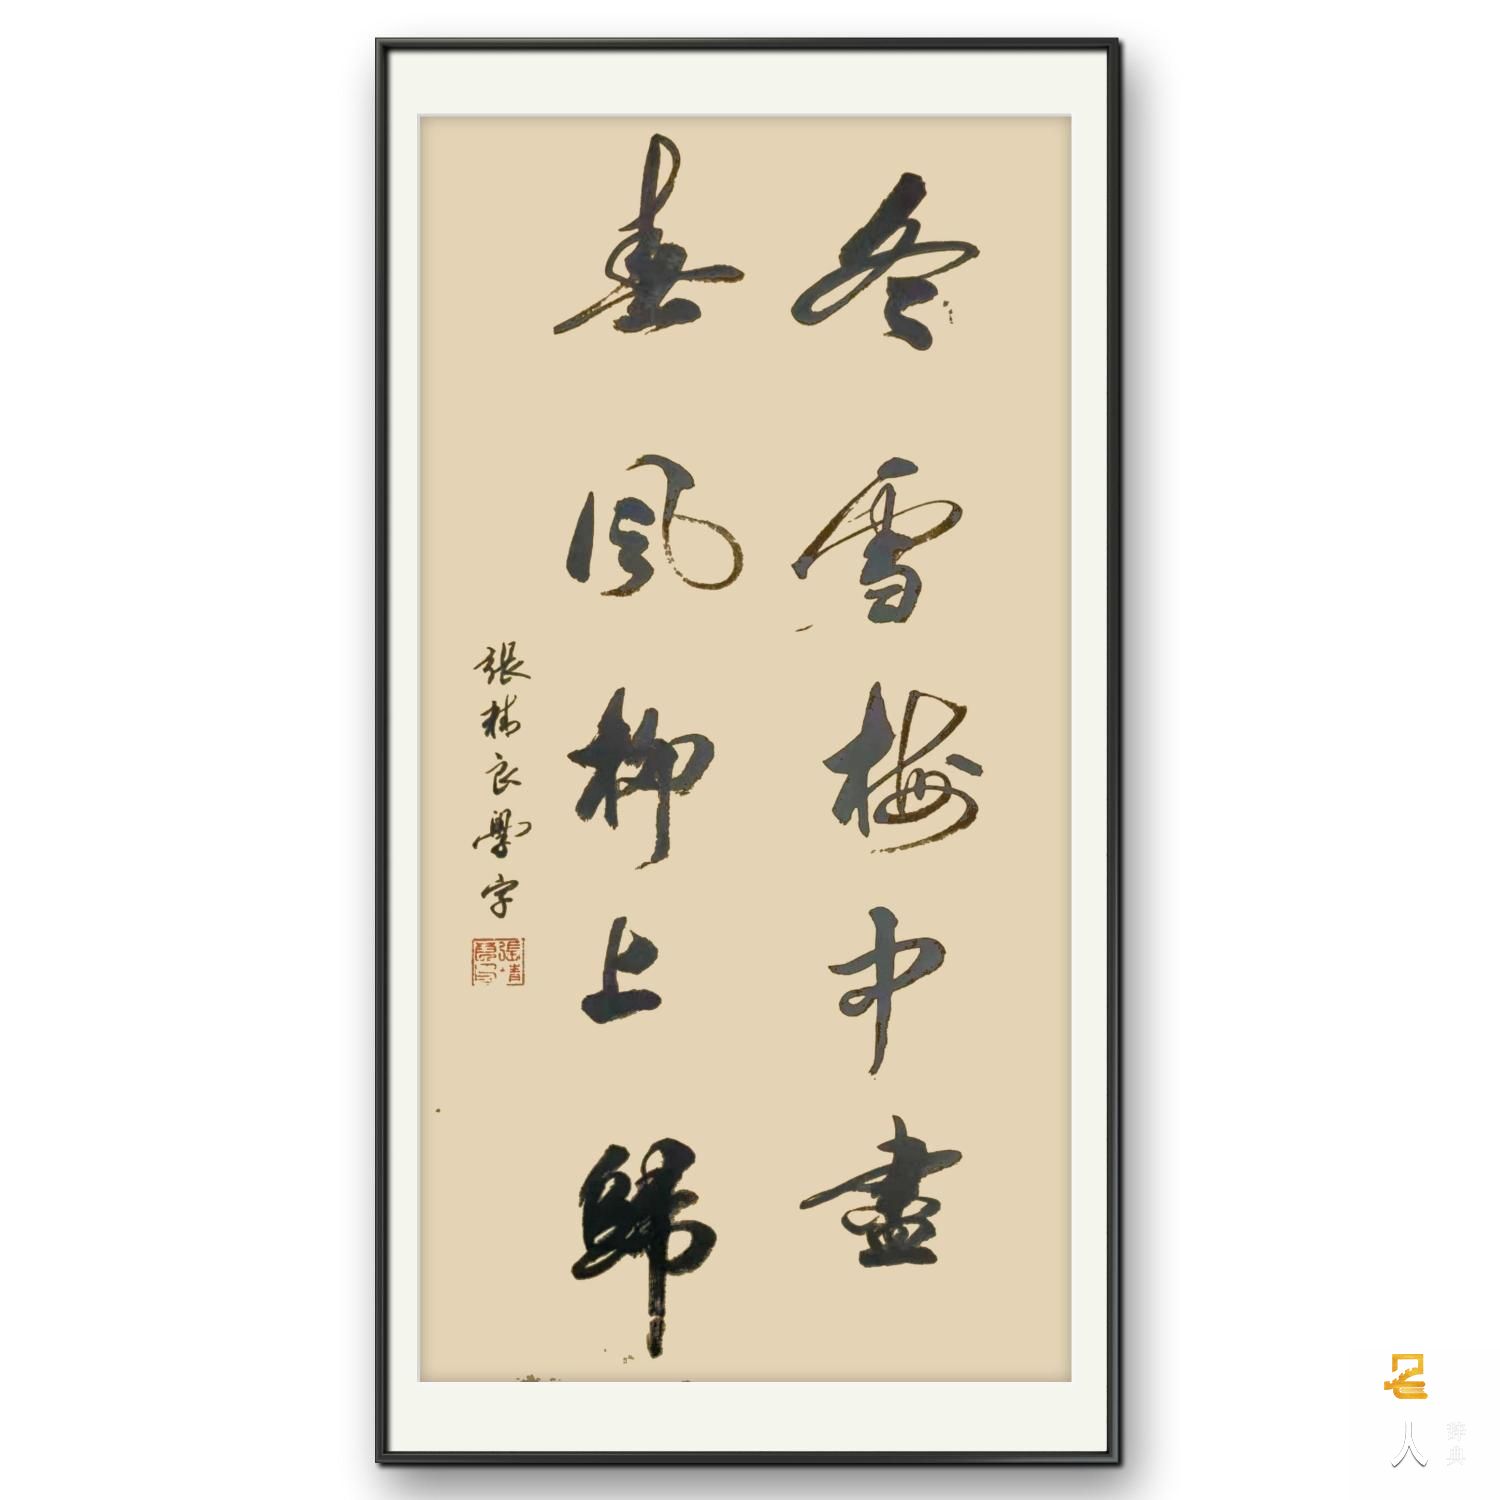 冬雪梅中盡
春風柳上歸
張 良學字
名人
辞典